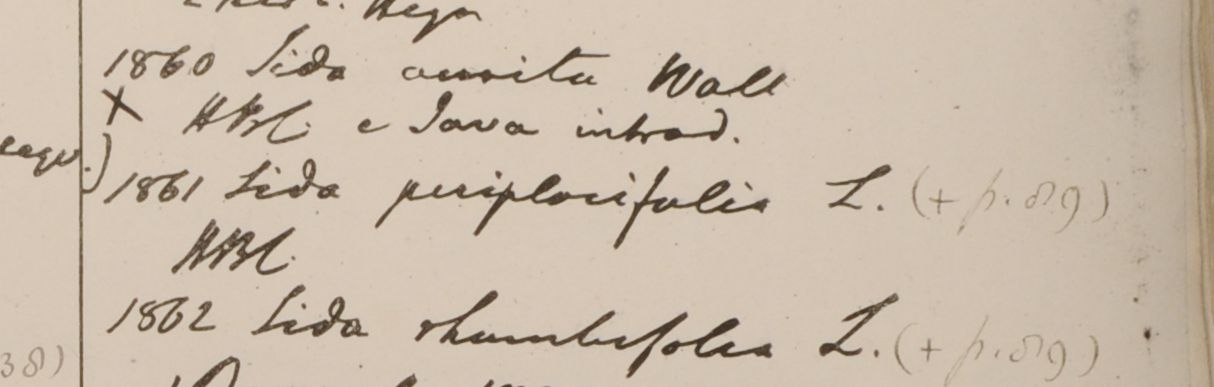 1860 Sida aurita Wall
X HBC. e Java introd.
1861 Sida periplocifolia L. (+ p. 89)
HBC.
1862 Sida rhombifolia L. (+ p. 89)
38)